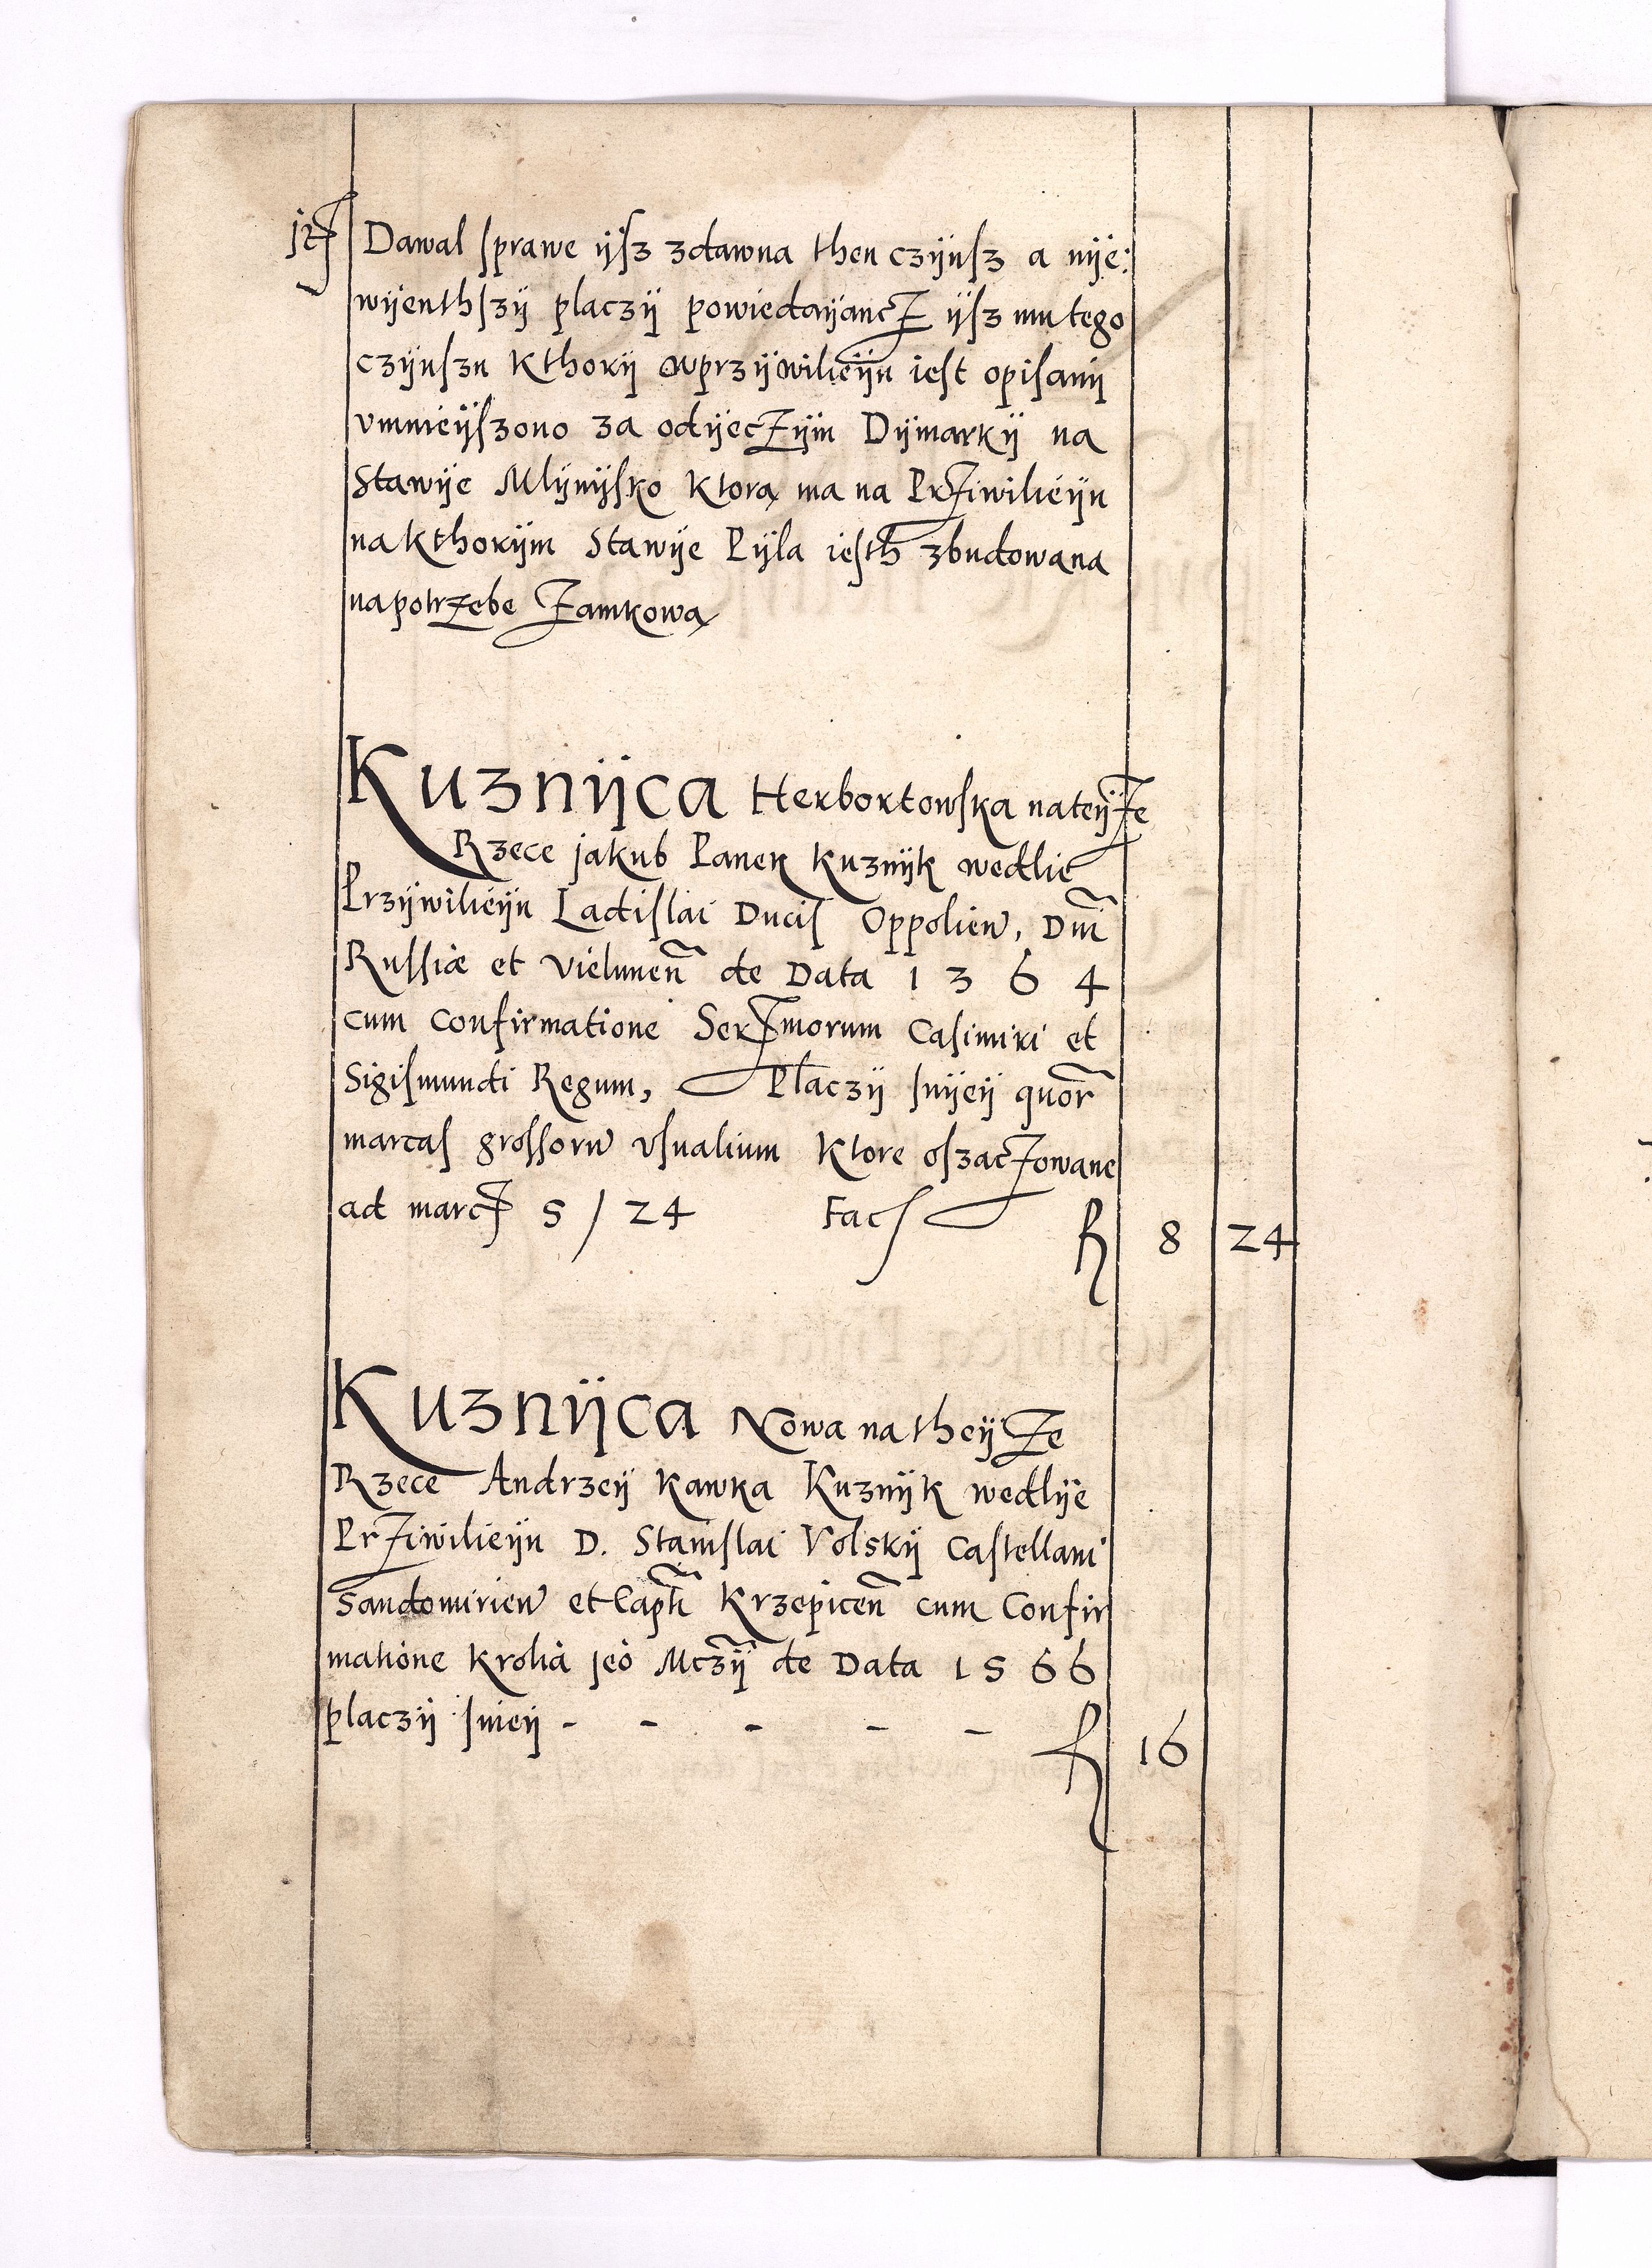 Jtꝫ Dawal sprawe ÿsz zdawna then czÿnsz a nÿe:
wÿenthszÿ placzÿ powiedaÿancz ÿsz mu tego
czÿnszu kthorÿ wprzÿwilieÿu iest opisanÿ
vmnieÿszono za odÿeczÿm Dÿmarkÿ na
Stawÿe Mlÿnÿsko ktorą ma na Prziwilieÿu
na kthorÿm Stawÿe Pÿla iesth zbudowana
na potrzebe Zamkową
Kuznÿca Herbortowska na teÿze
Rzece Jakub Panek kuznÿk wedlie
Przÿwilieÿu Ladislai Ducis Oppolien, Dni
Russiæ et Vielunen̄ de Data 1364
cum Confirmatione Serꝫmorum Casimiri et
Sigismundi Regum, Placzÿ snÿeÿ quor̄
marcas grossoru vsualium ktore oszaczowane
ad marcꝫ 5 / 24 Fac ƒ 8 24
Kuznÿca Nowa na theÿze
Rzece Andrzeÿ Kawka Kuznÿk wedlÿe
Prziwilieÿu D. Stanislai Volskÿ Castellani
Sandomirien et Capn̄ Krzepicen̄ cum Confir
matione Krolia Jeo Mczÿ de Data 1566
placzÿ snieÿ - - - - - ƒ 16